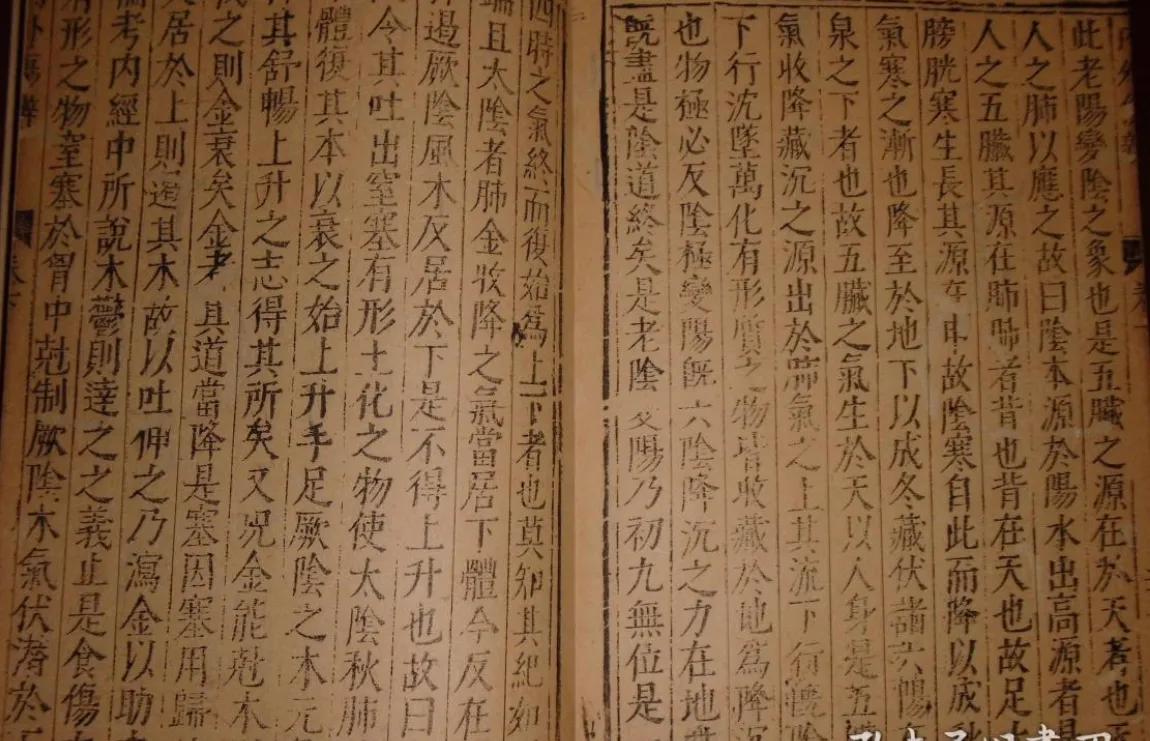 此老陽變陰之象也是五臟之源在於天者也
人之肺以應之故曰陰本源於陽水出高源者是
人之五臟其源在肺肺者背也背在天也故足
膀胱寒生長其源在申故陰寒自此而降以成秋
氣寒之漸也降至於地下以成冬藏伏諸六陽
泉之下者也故五臟之氣生於天以人身是五
氣收降藏沉之源出於肺氣之上其流下行既
下行沉墜萬化有形質之物皆收藏於地為降沉
也物極必反陰極變陽既六陰降沉之力在地
既盡是陰道終矣是老陰 陽乃初九無位是
四時之氣終而復始為上下者也莫知其紀如
端且太陰者肺金收降之氣當居下體今反在
過厥陰風木反居於下是不得上升也故曰
今其吐出窒塞有形土化之物使太陰秋肺
體復其本以衰之始上升手足厥陰之木元
其舒暢上升之志得其所矣又況金能尅木
之則金衰矣金者其道當降是塞因塞用歸
居於上則遏其木故以吐伸之乃瀉金以助
考內經中所說木鬱則達之之義止是食傷
形之物窒塞於胃中尅制厥陰木氣伏潛於
卷下